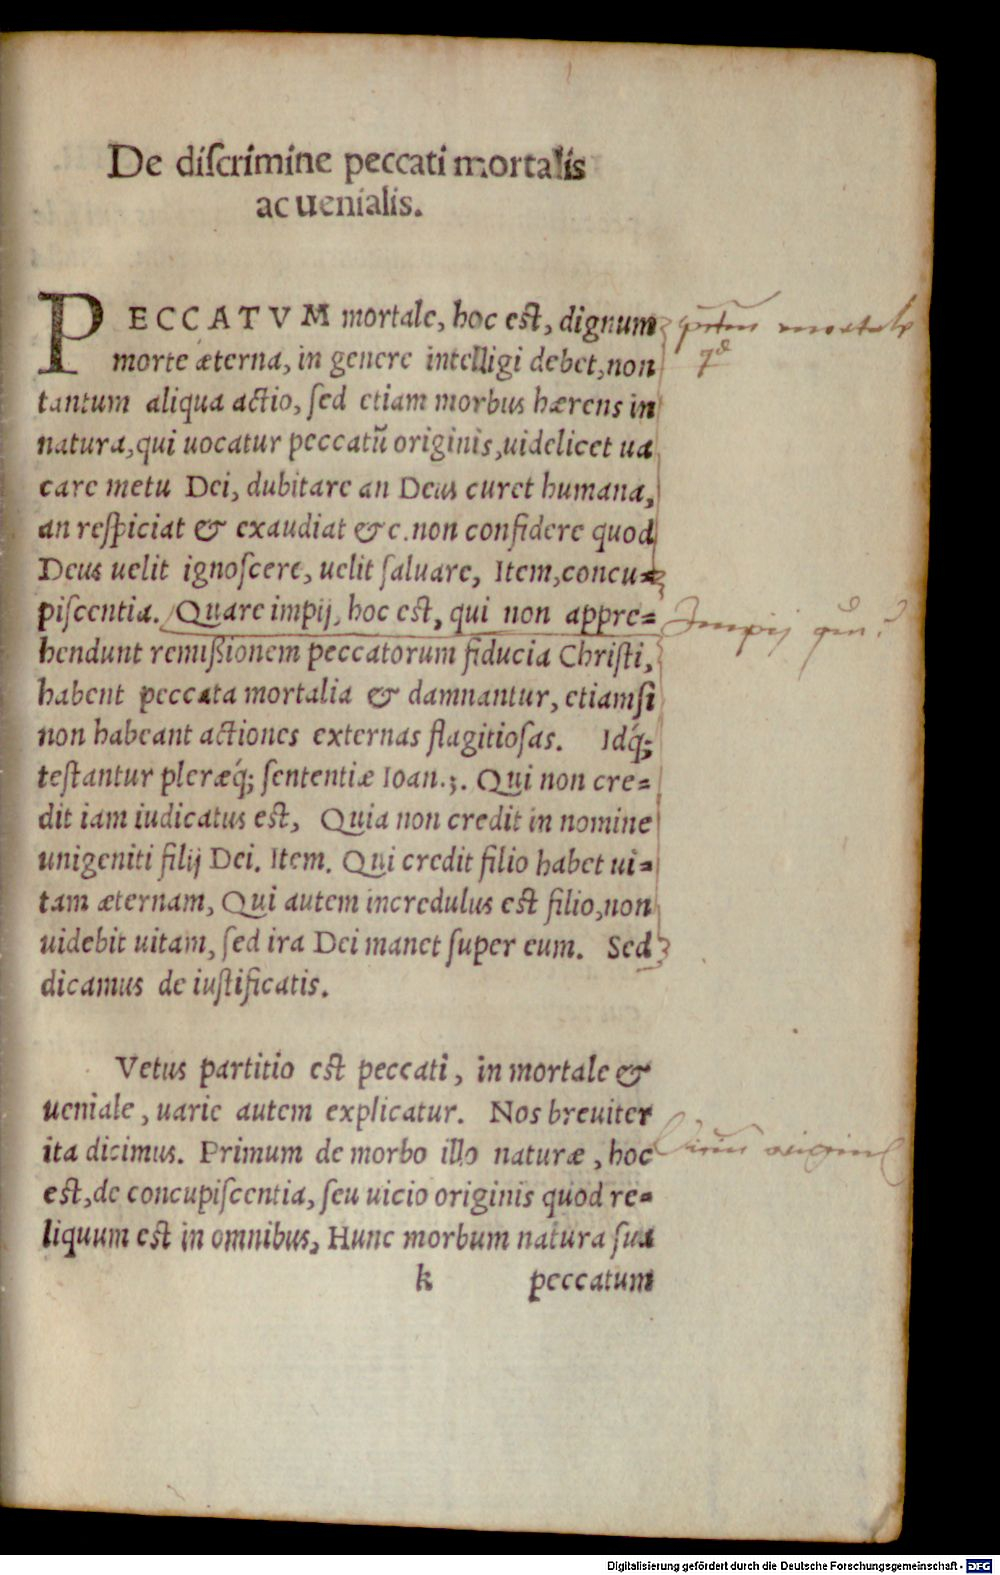 De diſcrimine peccati mortalis
ac uenialis.
PECCATVM mortale, hoc eſt, dignum
morte æterna, in genere intelligi debet, non
tantum aliqua actio, ſed etiam morbus hærens in
natura, qui uocatur peccatũ originis, uidelicet ua
care metu Dei, dubitare an Deus curet humana,
an reſpiciat & exaudiat &c. non confidere quod
Deus uelit ignoſcere, uelit ſaluare, Item, concu=
piſcentia. Quare impij, hoc eſt, qui non appre=
hendunt remißionem peccatorum fiducia Chriſti,
habent peccata mortalia & damnantur, etiamſi
non habeant actiones externas flagitioſas. Idq́;
teſtantur pleræq́; ſententiæ Ioan.3. Qui non cre=
dit iam iudicatus eſt, Quia non credit in nomine
unigeniti filij Dei. Item. Qui credit filio habet ui=
tam æternam, Qui autem incredulus eſt filio, non
uidebit uitam, ſed ira Dei manet ſuper eum. Sed
dicamus de iuſtificatis.
Vetus partitio eſt peccati, in mortale &
ueniale, uarie autem explicatur. Nos breuiter
ita dicimus. Primum de morbo illo naturæ, hoc
eſt, de concupiſcentia, ſeu uicio originis quod re=
liquum eſt in omnibus, Hunc morbum natura ſua
k peccatum
mortale
Impij
Digitalisierung gefördert durch die Deutsche Forschungsgemeinschaft - DFG